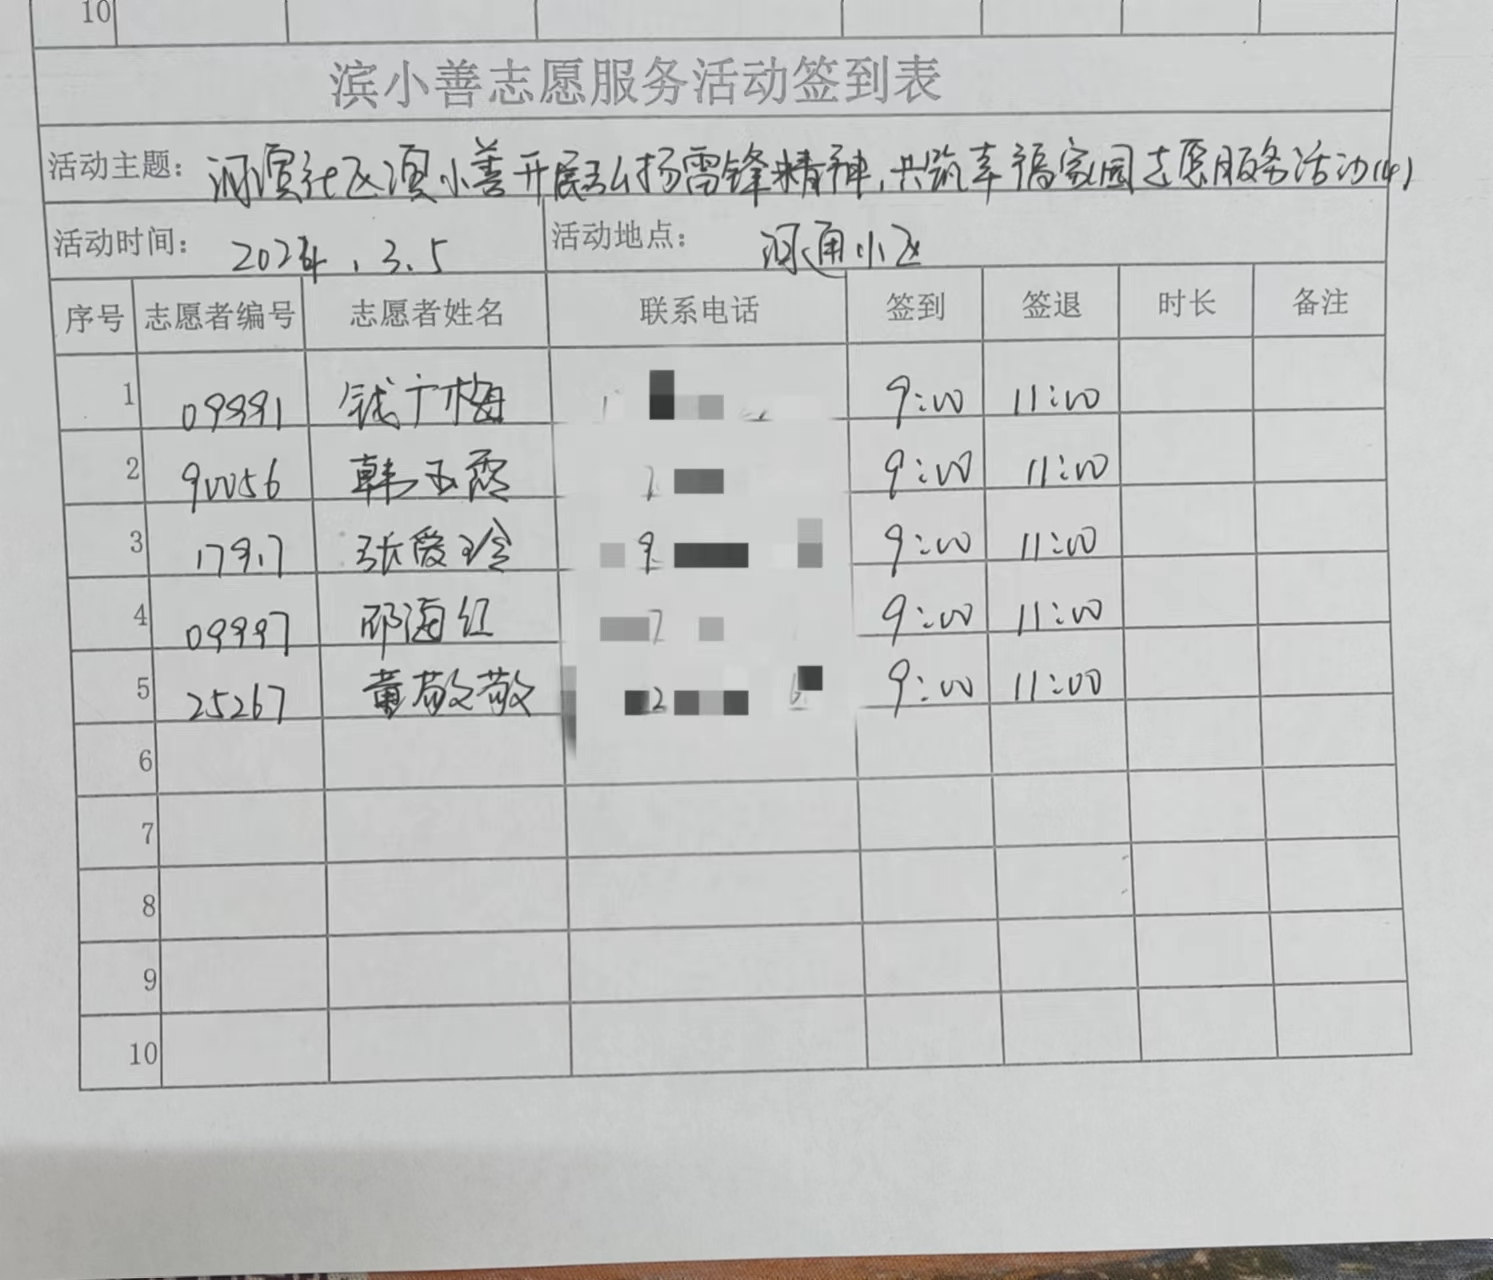 10
滨小善志愿服务活动签到表
活动主题： 河滨社区滨小善开展弘扬雷锋精神,共筑幸福家园志愿服务活动(4)
活动时间： 2024.3.5 活动地点： 河通小区
序号 志愿者编号 志愿者姓名 联系电话 签到 签退 时长 备注
1 09991 钱广梅 9:00 11:00
2 90056 韩玉霞 9:00 11:00
3 17917 张爱玲 9:00 11:00
4 09997 邱海红 9:00 11:00
5 25267 董敬敬 9:00 11:00
6
7
8
9
10